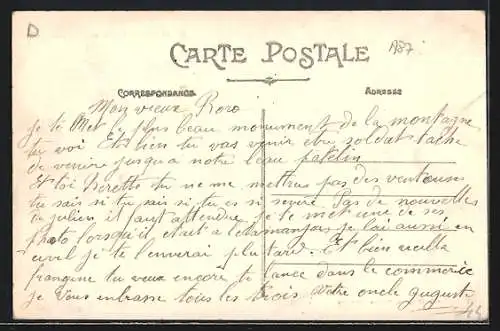 D
A87
CARTE POSTALE
CORRESPONDANCE
ADRESSE
Mon vieux Roro
je te Met le plus beau monument de la montagne
tu voi. Et bien tu vas venir être soldat tache
de venire jusqua notre beau patelin
Et toi tu ne me mettras pas des ventouses
tu sais si tu sais si tu es si sevère. Pas de nouvelles
a julien il faut attendre je te met une de ses
photo lorsqu'il était a je lai aussi en
civil je te l'enverai plu tard. Et bien vieille
frangine tu veux encore te lance dans le commerce
je vous embrasse tous les trois Votre oncle Auguste